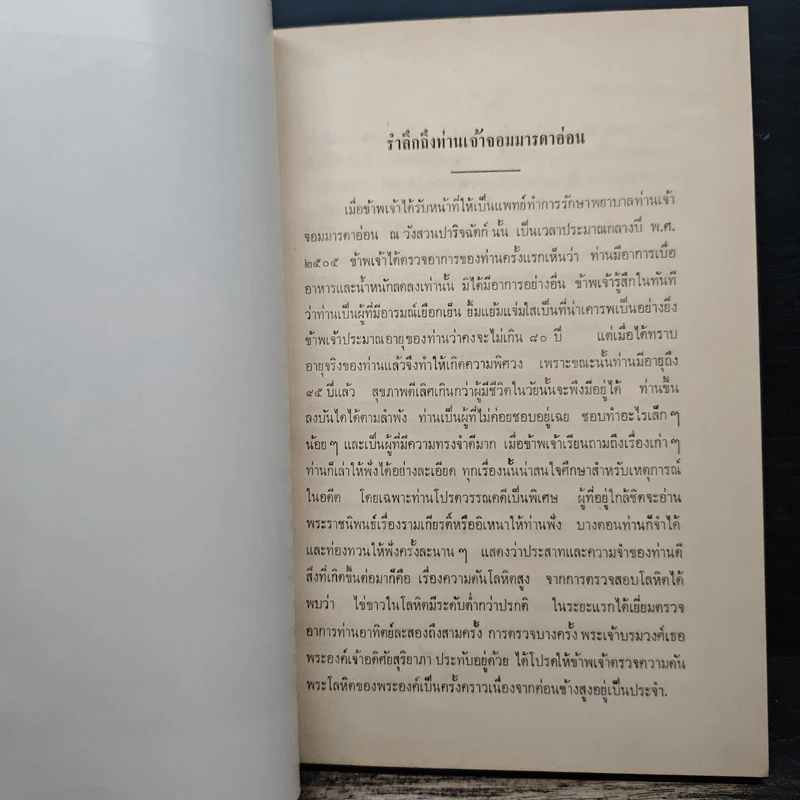 รำลึกถึงท่านเจ้าจอมมารดาอ่อน
เมื่อข้าพเจ้าได้รับหน้าที่ให้เป็นแพทย์ทำการรักษาพยาบาลท่านเจ้า
จอมมารดาอ่อน ณ วังสวนปาริจฉัตก์ นั้น เป็นเวลาประมาณกลางปี พ.ศ.
๒๕๐๕ ข้าพเจ้าได้ตรวจอาการของท่านครั้งแรกเห็นว่า ท่านมีอาการเบื่อ
อาหารและน้ำหนักลดลงเท่านั้น มิได้มีอาการอย่างอื่น ข้าพเจ้ารู้สึกในทันที
ว่าท่านเป็นผู้ที่มีอารมณ์เยือกเย็น ยิ้มแย้มแจ่มใสเป็นที่น่าเคารพเป็นอย่างยิ่ง
ข้าพเจ้าประมาณอายุของท่านว่าคงจะไม่เกิน ๘๐ ปี แต่เมื่อได้ทราบ
อายุจริงของท่านแล้วจึงทำให้เกิดความพิศวง เพราะขณะนั้นท่านมีอายุถึง
๙๕ ปีแล้ว สุขภาพดีเลิศเกินกว่าผู้มีชีวิตในวัยนั้นจะพึงมีอยู่ได้ ท่านขึ้น
ลงบันไดได้ตามลำพัง ท่านเป็นผู้ที่ไม่ค่อยชอบอยู่เฉย ชอบทำอะไรเล็ก ๆ
น้อย ๆ และเป็นผู้ที่มีความทรงจำดีมาก เมื่อข้าพเจ้าเรียนถามถึงเรื่องเก่า ๆ
ท่านก็เล่าให้ฟังได้อย่างละเอียด ทุกเรื่องนั้นน่าสนใจศึกษาสำหรับเหตุการณ์
ในอดีต โดยเฉพาะท่านโปรดวรรณคดีเป็นพิเศษ ผู้ที่อยู่ใกล้ชิดจะอ่าน
พระราชนิพนธ์เรื่องรามเกียรติ์หรืออิเหนาให้ท่านฟัง บางตอนท่านก็จำได้
และท่องทวนให้ฟังครั้งละนาน ๆ แสดงว่าประสาทและความจำของท่านดี
สิ่งที่เกิดขึ้นต่อมาก็คือ เรื่องความดันโลหิตสูง จากการตรวจสอบโลหิตได้
พบว่า ไข่ขาวในโลหิตมีระดับต่ำกว่าปรกติ ในระยะแรกได้เยี่ยมตรวจ
อาการท่านอาทิตย์ละสองถึงสามครั้ง การตรวจบางครั้ง พระเจ้าบรมวงศ์เธอ
พระองค์เจ้าอดิศัยสุริยาภา ประทับอยู่ด้วย ได้โปรดให้ข้าพเจ้าตรวจความดัน
พระโลหิตของพระองค์เป็นครั้งคราวเนื่องจากค่อนข้างสูงอยู่เป็นประจำ.